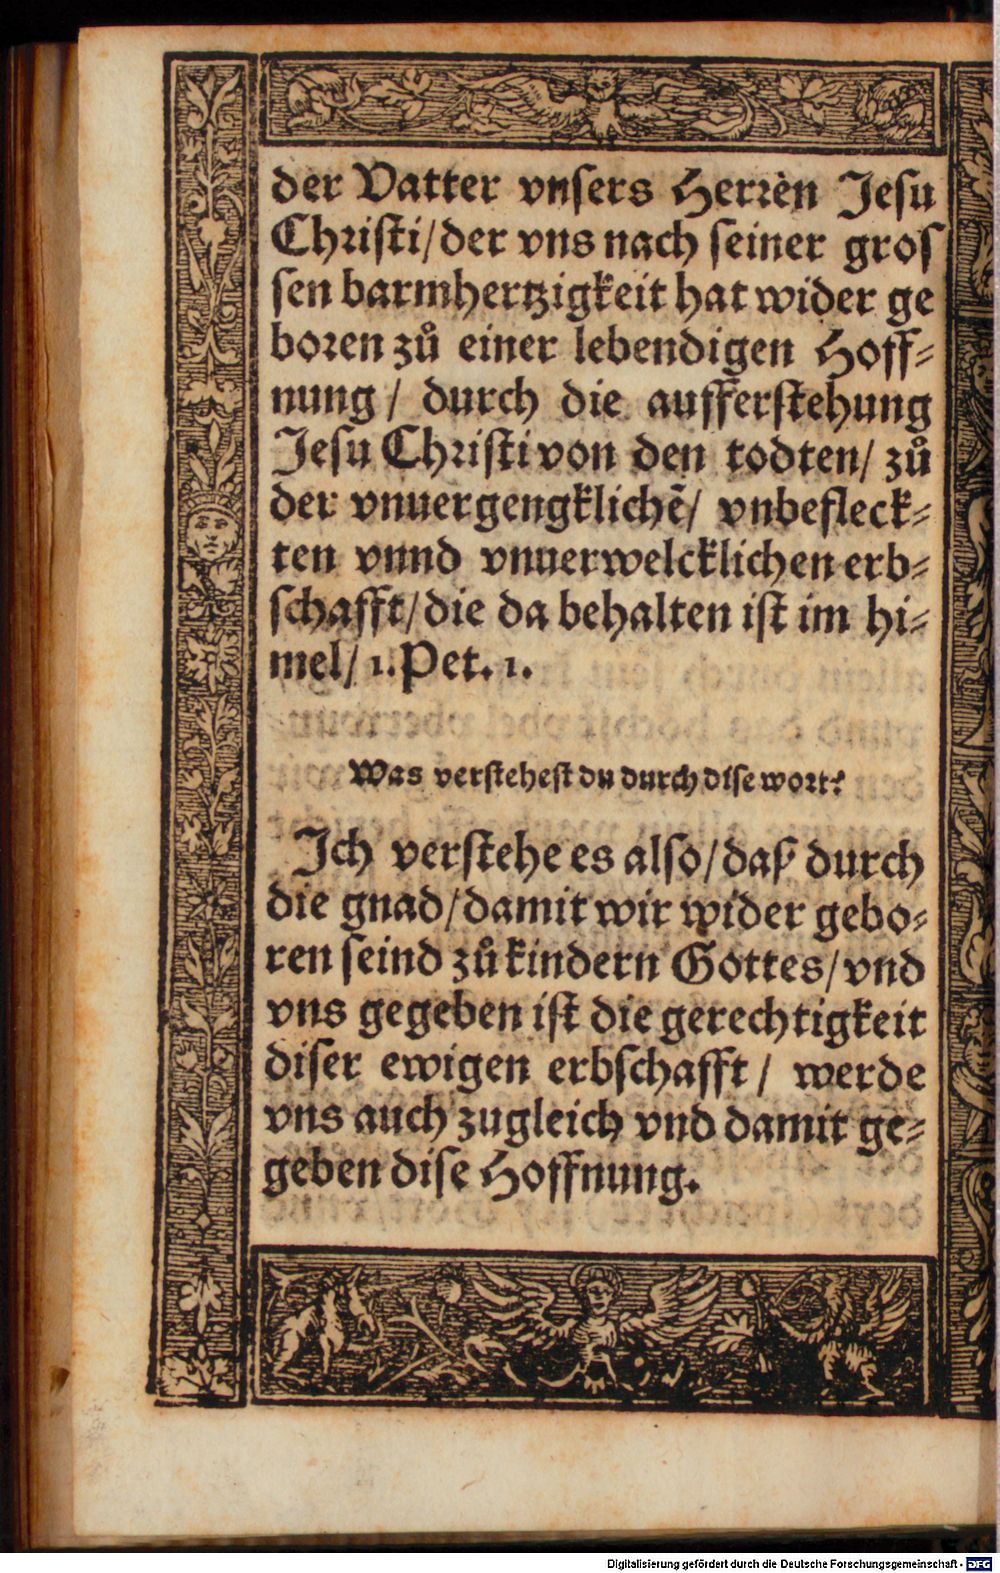 der Vatter vnsers Herren Jesu
Christi/der vns nach seiner gros
sen barmhertzigkeit hat wider ge
boren zů einer lebendigen Hoff-
nung/ durch die aufferstehung
Jesu Christi von den todten/ zů
der vnuergengklichẽ/ vnbefleck-
ten vnnd vnuerwelcklichen erb-
schafft/die da behalten ist im hi-
mel/ 1. Pet. 1.
Was verstehest du durch dise wort?
Ich verstehe es also/daß durch
die gnad/damit wir wider gebo-
ren seind zů kindern Gottes/vnd
vns gegeben ist die gerechtigkeit
diser ewigen erbschafft/ werde
vns auch zugleich vnd damit ge-
geben dise Hoffnung.
Digitalisierung gefördert durch die Deutsche Forschungsgemeinschaft - DFG